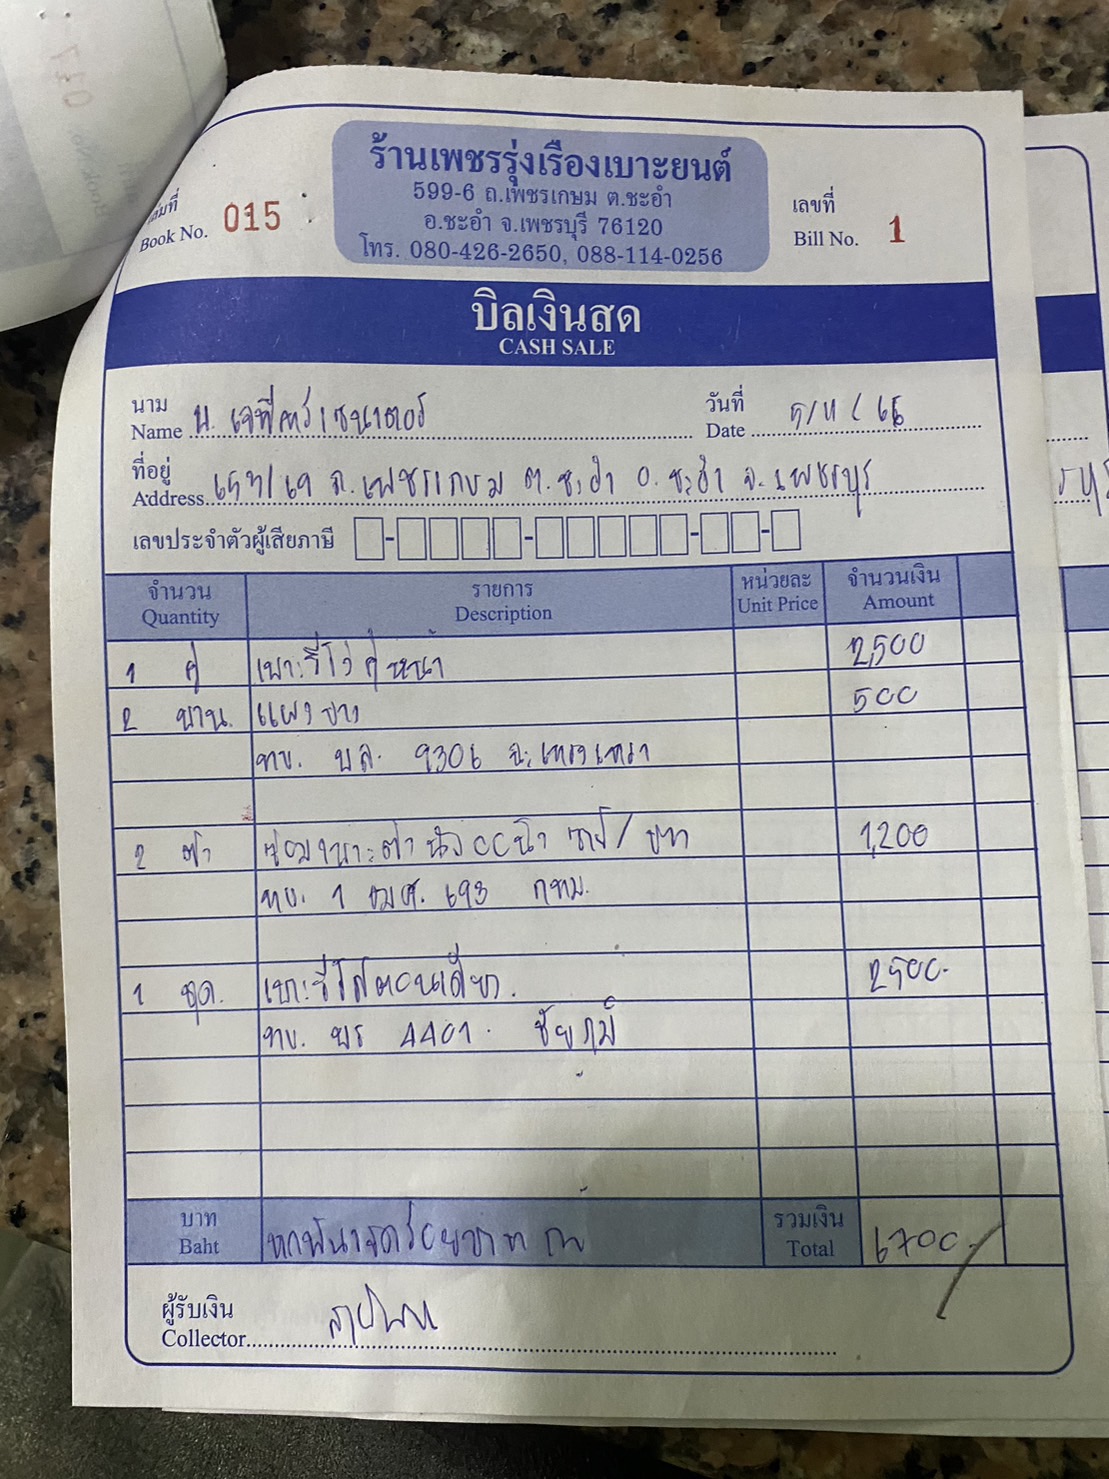 ร้านเพชรรุ่งเรืองเบาะยนต์
599-6 ถ.เพชรเกษม ต.ชะอำ
อ.ชะอำ จ.เพชรบุรี 76120
โทร. 080-426-2650, 088-114-0256
เล่มที่
Book No. 015
เลขที่
Bill No. 1
บิลเงินสด
CASH SALE
นาม
Name บ.
วันที่
Date 5/11/66
ที่อยู่
Address ถ.เพชรเกษม ต.ชะอำ อ.ชะอำ จ.เพชรบุรี
เลขประจำตัวผู้เสียภาษี
จำนวน รายการ หน่วยละ จำนวนเงิน
Quantity Description Unit Price Amount
1 คู่ คู่หน้า 2,500
2 บาน. แผงข้าง 500
ทบ. บล. 9306 ฉะเชิงเทรา
2 ตัว ซ่อมเบาะ ซ้าย/ขวา 1,200
ทบ. 1 ฒศ. 693 กทม.
1 ชุด. ตอนเดียว. 2500.
ทบ. 4401. ชัยภูมิ
บาท หกพันเจ็ดร้อยบาท รวมเงิน 6700.
Baht Total
ผู้รับเงิน
Collector